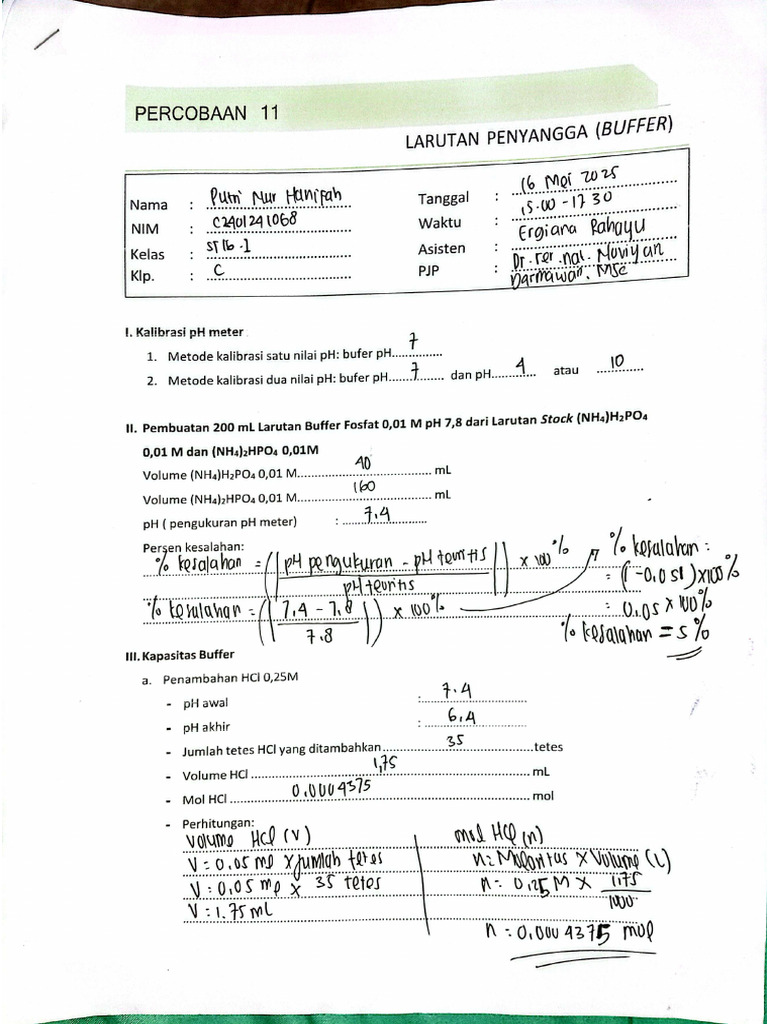 PERCOBAAN 11
LARUTAN PENYANGGA (BUFFER)
Nama : Putri Nur Hanifah
NIM : C2401241068
Kelas : ST16.1
Klp. : C
Tanggal : 16 Mei 2025
Waktu : 15.00-17.30
Asisten : Ergiana Rahayu
PJP : Dr.rer.nat. Noviyan
Darmawan, MSc
I. Kalibrasi pH meter
1. Metode kalibrasi satu nilai pH: bufer pH 7
2. Metode kalibrasi dua nilai pH: bufer pH 7 dan pH 4 atau 10
II. Pembuatan 200 mL Larutan Buffer Fosfat 0,01 M pH 7,8 dari Larutan Stock (NH₄)H₂PO₄
0,01 M dan (NH₄)₂HPO₄ 0,01M
Volume (NH₄)H₂PO₄ 0,01 M 40 mL
Volume (NH₄)₂HPO₄ 0,01 M 160 mL
pH ( pengukuran pH meter) : 7.4
Persen kesalahan:
% kesalahan = (|pH pengukuran - pH teoritis / pH teoritis|) x 100%
% kesalahan = (|7.4 - 7.8 / 7.8|) x 100%
% kesalahan :
= (|-0.051) x 100%
= 0.05 x 100%
% kesalahan = 5%
III. Kapasitas Buffer
a. Penambahan HCl 0,25M
- pH awal : 7.4
- pH akhir : 6.4
- Jumlah tetes HCl yang ditambahkan 35 tetes
- Volume HCl 1,75 mL
- Mol HCl 0.0004375 mol
- Perhitungan:
Volume HCl (V)
V = 0.05 ml x jumlah tetes
V = 0.05 ml x 35 tetes
V = 1.75 mL
mol HCl (n)
n = Molaritas x Volume (L)
n = 0,25 M x 1.75 / 1000
n = 0.0004375 mol